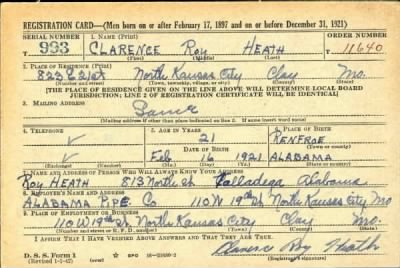 REGISTRATION CARD—(Men born on or after February 17, 1897 and on or before December 31, 1921)
SERIAL NUMBER 1. NAME (Print) ORDER NUMBER
T 993 CLARENCE Roy HEATH 11640
(First) (Middle) (Last)
2. PLACE OF RESIDENCE (Print)
North Kansas City Clay Mo.
(Number and street) (Town, township, village, or city) (County) (State)
[THE PLACE OF RESIDENCE GIVEN ON THE LINE ABOVE WILL DETERMINE LOCAL BOARD
JURISDICTION; LINE 2 OF REGISTRATION CERTIFICATE WILL BE IDENTICAL]
3. MAILING ADDRESS
Same
(Mailing address if other than place indicated on line 2. If same insert word same)
4. TELEPHONE 5. AGE IN YEARS 6. PLACE OF BIRTH
21 RENFROE
DATE OF BIRTH (Town or county)
Feb 16 1921 ALABAMA
(Exchange) (Number) (Mo.) (Day) (Yr.) (State or country)
7. NAME AND ADDRESS OF PERSON WHO WILL ALWAYS KNOW YOUR ADDRESS
Roy HEATH 813 North st Talladega Alabama
8. EMPLOYER'S NAME AND ADDRESS
ALABAMA PIPE Co 110 W 19th st North Kansas City Mo
9. PLACE OF EMPLOYMENT OR BUSINESS
110 W 19th st North Kansas City Clay Mo.
(Number and street or R. F. D. number) (Town) (County) (State)
I AFFIRM THAT I HAVE VERIFIED ABOVE ANSWERS AND THAT THEY ARE TRUE.
D. S. S. Form 1 GPO Clarence Roy Heath
(Revised 1-1-42) (Registrant's signature)